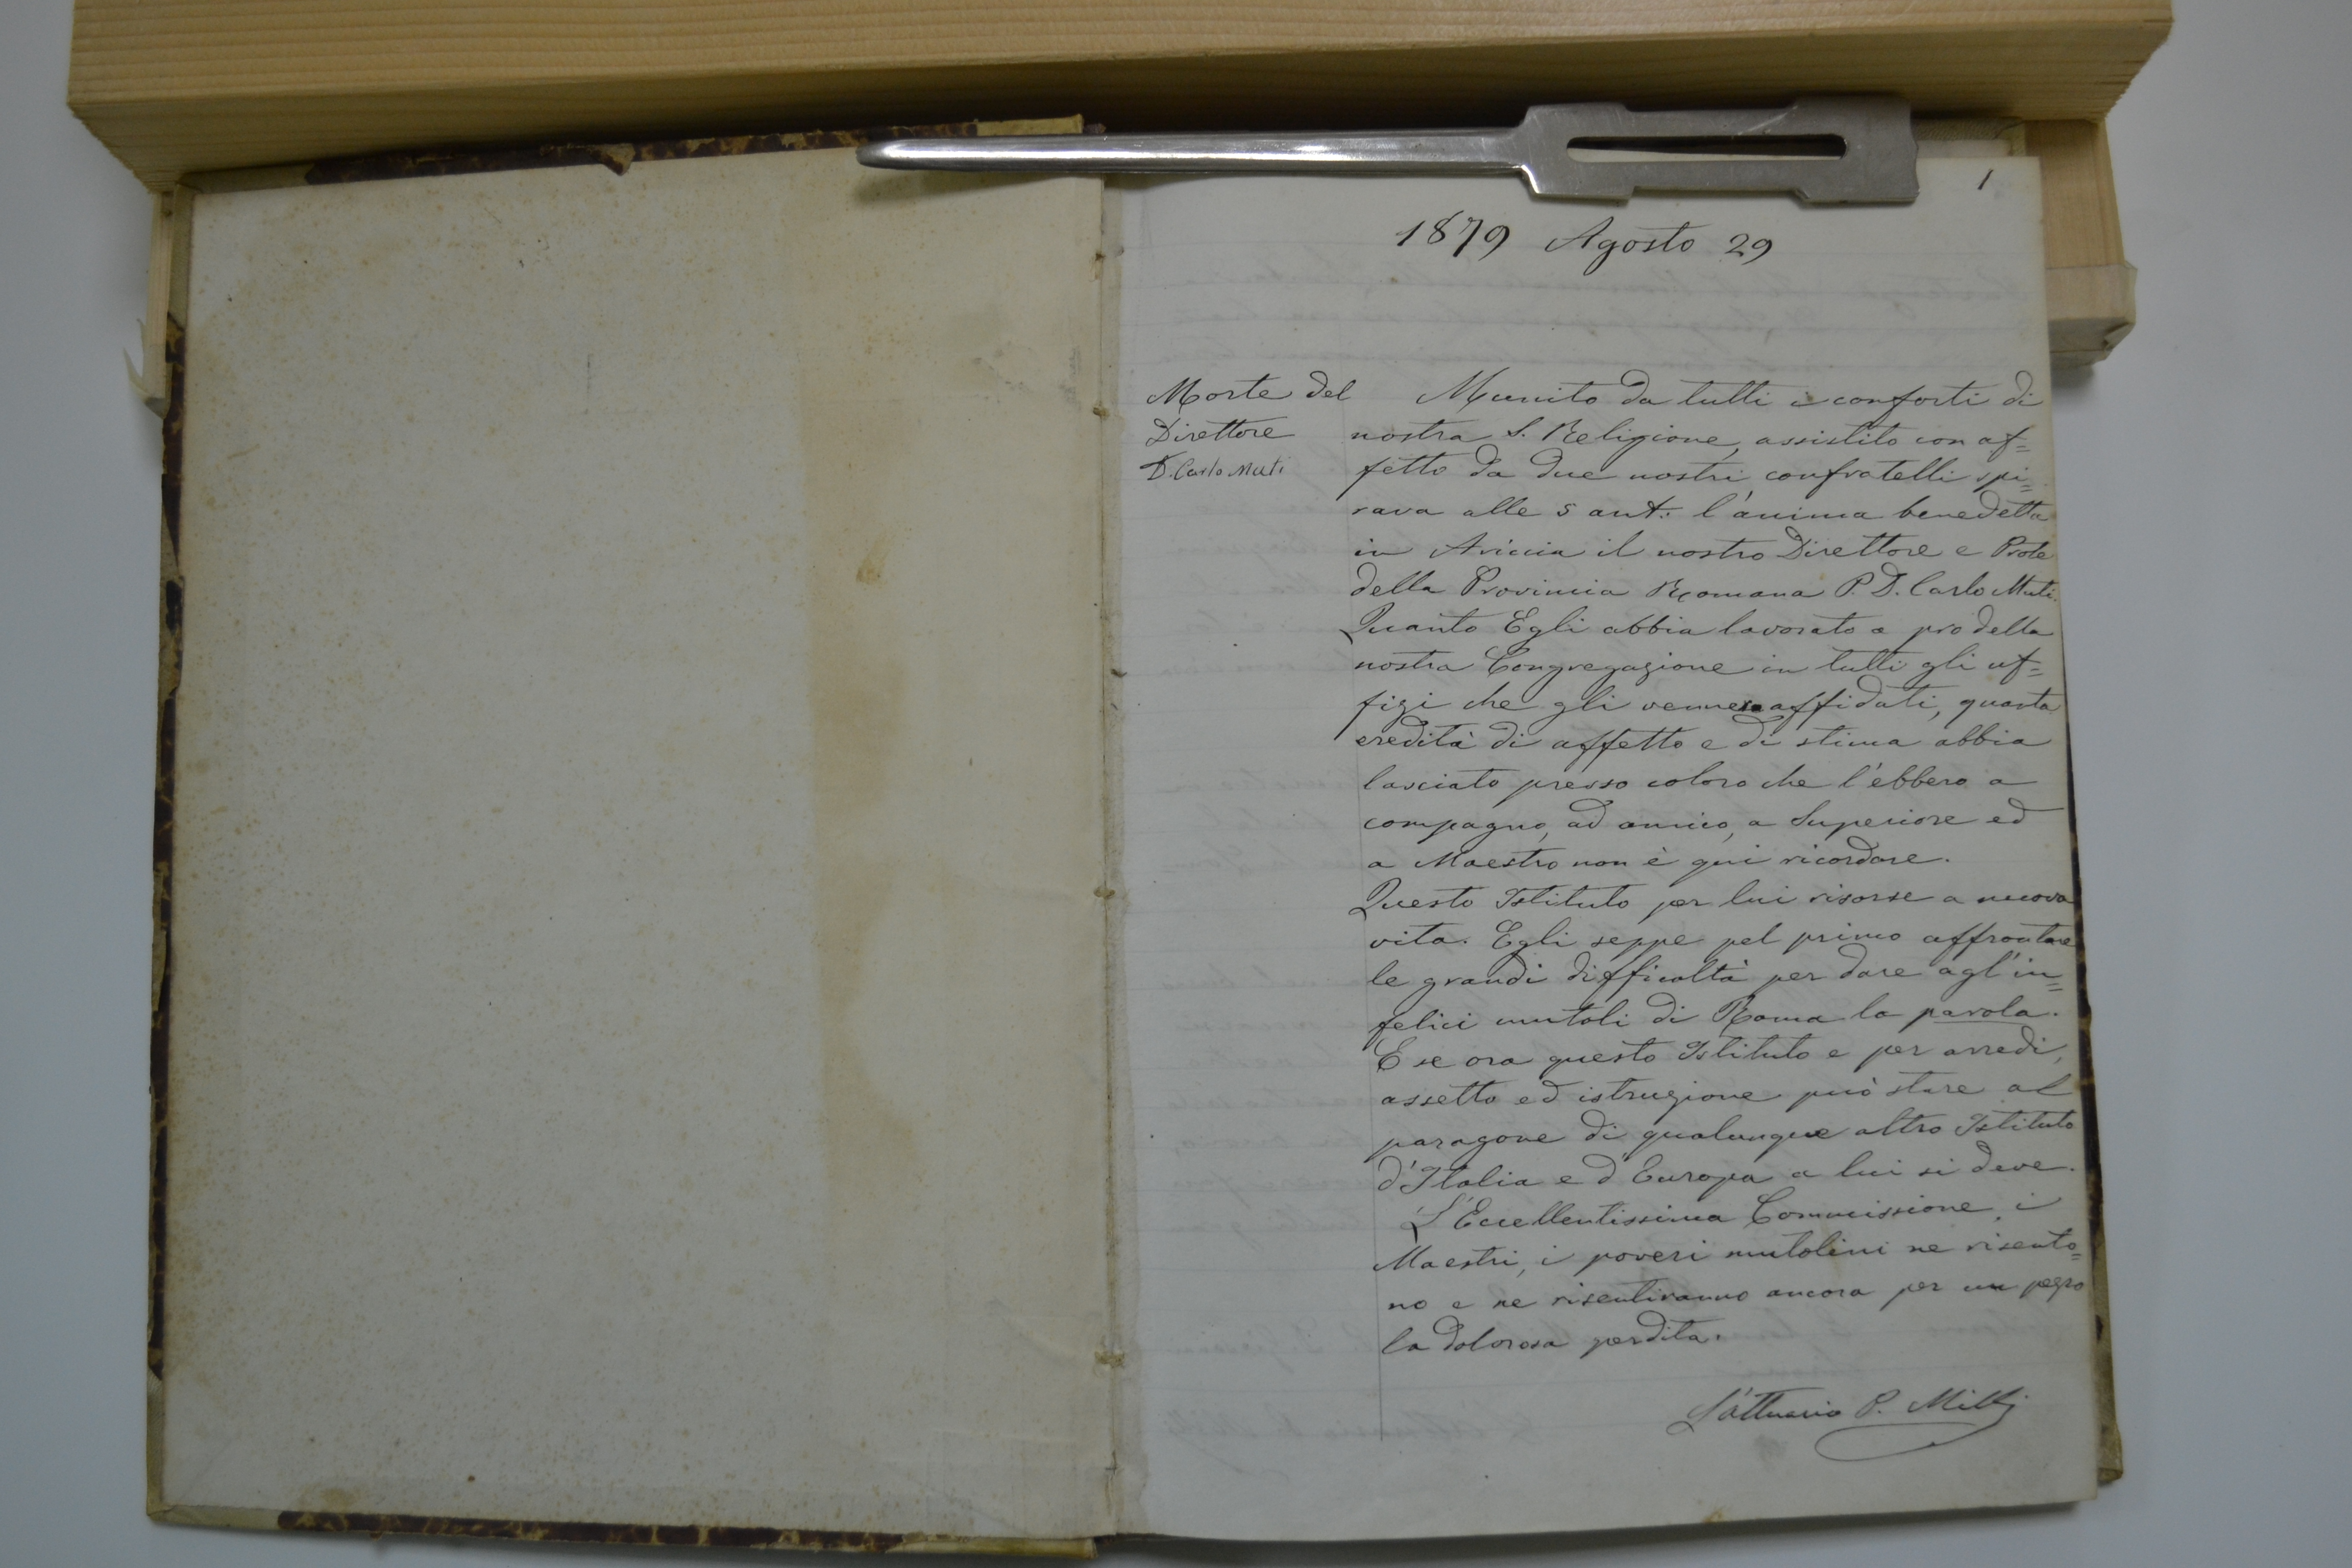 1
1879 Agosto 29
Morte del
Direttore
D. Carlo Muti
Munito da tutti i conforti di
nostra S. Religione, assistito con af=
fetto da due nostri confratelli spi=
rava alle 5 ant: l'anima benedetta
in Ariccia il nostro Direttore e Prole
della Provincia Romana P. D. Carlo Muti.
Quanto Egli abbia lavorato a pro della
nostra Congregazione in tutti gli uf=
fizi che gli vennero affidati, quanta
eredità di affetto e di stima abbia
lasciato presso coloro che l'ebbero a
compagno, ad amico, a Superiore ed
a Maestro non è qui ricordare.
Questo Istituto per lui risorse a nuova
vita. Egli seppe pel primo affrontare
le grandi difficoltà per dare agl'in=
felici mutoli di Roma la parola.
E se ora questo Istituto e per arredi,
assetto ed istruzione può stare al
paragone di qualunque altro Istituto
d'Italia e d'Europa a lui si deve.
L'Eccellentissima Commissione, i
Maestri, i poveri mutolini ne risento=
no e ne risentiranno ancora per un pezzo
la dolorosa perdita.
L'attuario P.